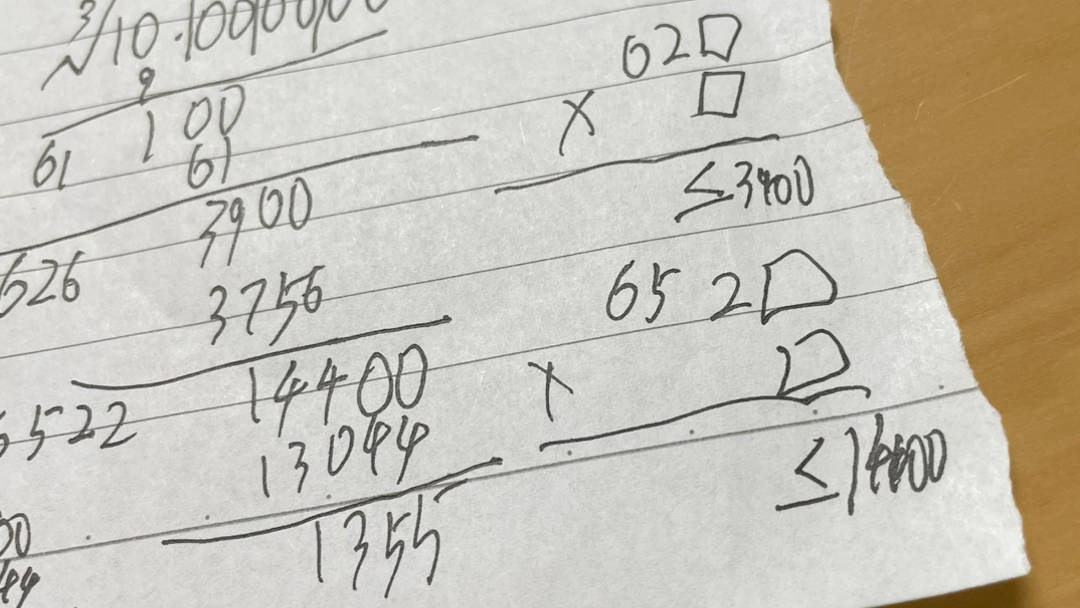 3√10.10000000
9
100
61 61
3900
626 3756
14400
5522 13044
1355
00
44
62□
× □
≤3900
652□
× □
≤14400